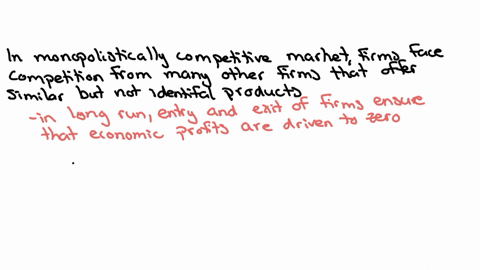 In monopolistically competitive market, firms face
competition from many other firms that offer
similar but not identifal products
-in long run, entry and exit of firms ensure
that economic profits are driven to zero